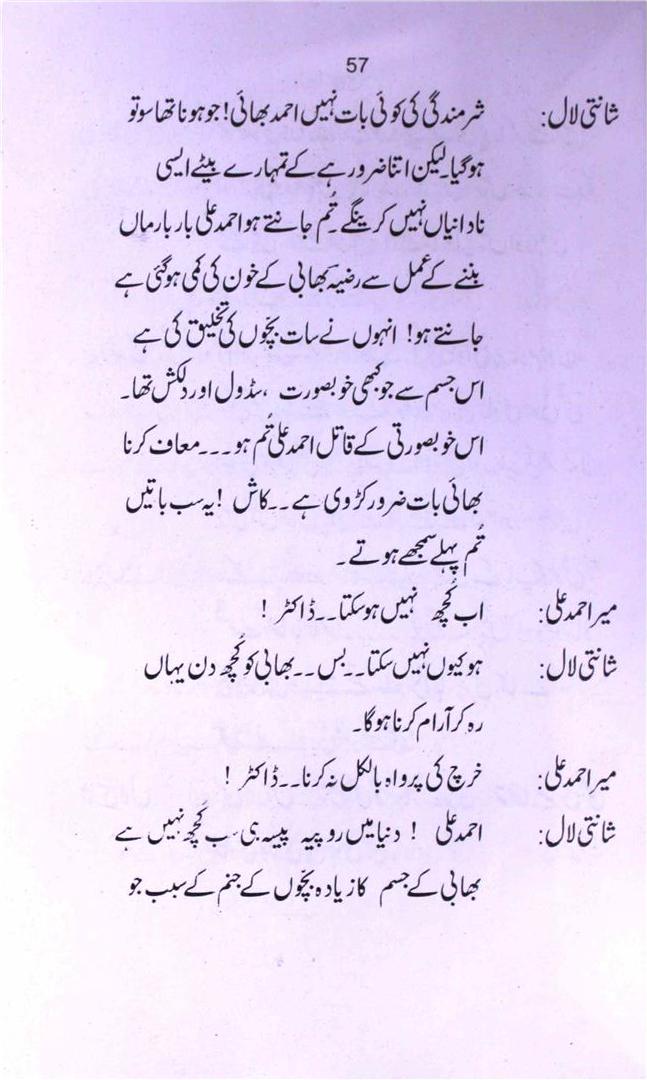 57
شانتی لال: شرمندگی کی کوئی بات نہیں احمد بھائی! جو ہونا تھا سو تو
ہو گیا۔ لیکن اتنا ضرور ہے کے تمہارے بیٹے ایسی
نادانیاں نہیں کرینگے۔ تُم جانتے ہو احمد علی بار بار ماں
بننے کے عمل سے رضیہ بھابی کے خون کی کمی ہو گئی ہے
جانتے ہو! انہوں نے سات بچّوں کی تخلیق کی ہے
اس جسم سے جو کبھی خوبصورت ،سڈول اور دلکش تھا۔
اس خوبصورتی کے قاتل احمد علی تُم ہو۔۔۔معاف کرنا
بھائی بات ضرور کڑوی ہے۔۔کاش !یہ سب باتیں
تُم پہلے سمجھے ہوتے۔
میر احمد علی: اب کُچھ نہیں ہو سکتا۔۔ڈاکٹر !
شانتی لال: ہو کیوں نہیں سکتا۔۔بس۔۔بھابی کو کُچھ دن یہاں
رہ کر آرام کرنا ہوگا۔
میر احمد علی: خرچ کی پرواہ بالکل نہ کرنا۔۔ڈاکٹر !
شانتی لال: احمد علی ! دنیا میں روپیہ پیسہ ہی سب کُچھ نہیں ہے
بھابی کے جسم کا زیادہ بچّوں کے جنم کے سبب جو